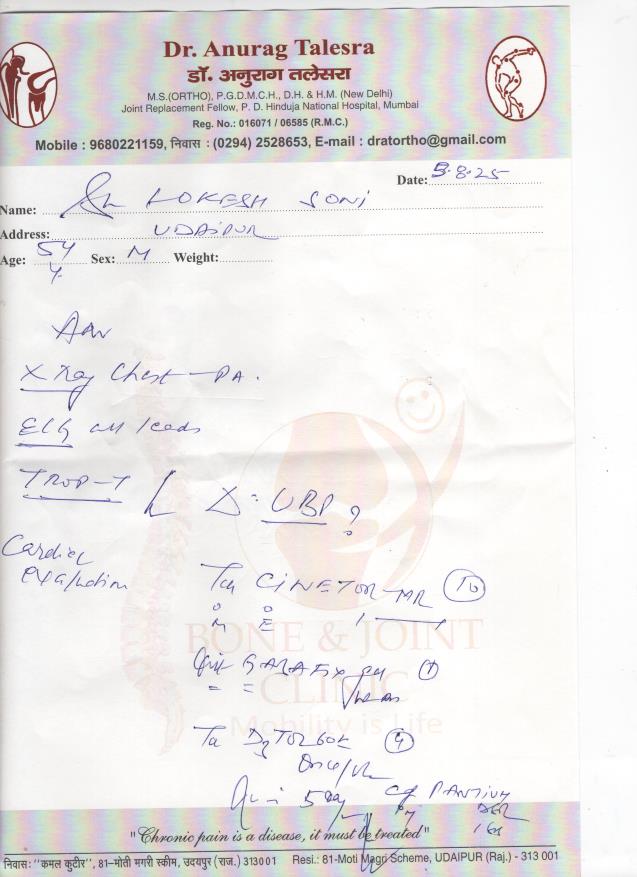 Dr. Anurag Talesra
डॉ. अनुराग तलेसरा
M.S.(ORTHO), P.G.D.M.C.H., D.H. & H.M. (New Delhi)
Joint Replacement Fellow, P. D. Hinduja National Hospital, Mumbai
Reg. No.: 016071 / 06585 (R.M.C.)
Mobile : 9680221159, निवास : (0294) 2528653, E-mail : dratortho@gmail.com
Date: 5.8.25
Name: LOKESH SONI
Address: UDAIPUR
Age: 54 Y Sex: M Weight:
Adv
X Ray Chest - PA.
ECG all leads
TROP-T
Δ: UBP ?
Cardiac
evaluation
Tab CINETOR-MR 10
M E
BONE & JOINT
CLINIC
Mobility is Life
Tab
5 day
"Chronic pain is a disease, it must be treated"
निवास: "कमल कुटीर", 81-मोती मगरी स्कीम, उदयपुर (राज.) 313001 Resi.: 81-Moti Magri Scheme, UDAIPUR (Raj.) - 313 001